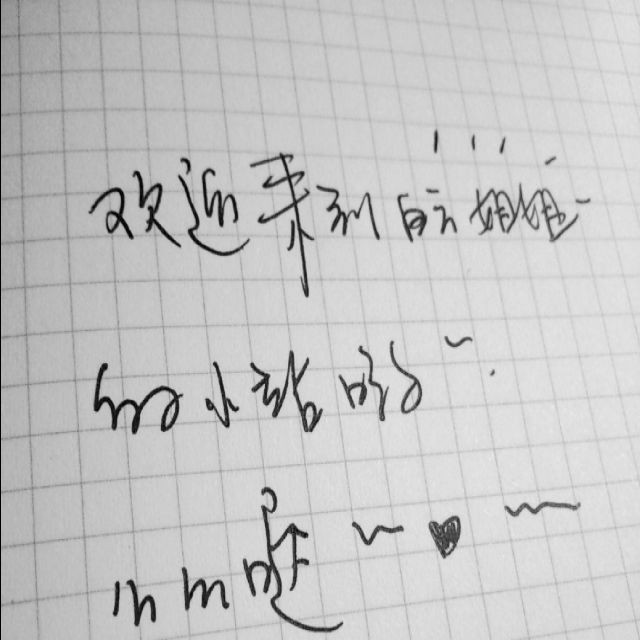 欢迎来到皖姐姐
的小酷哟~
mm哒~♥~